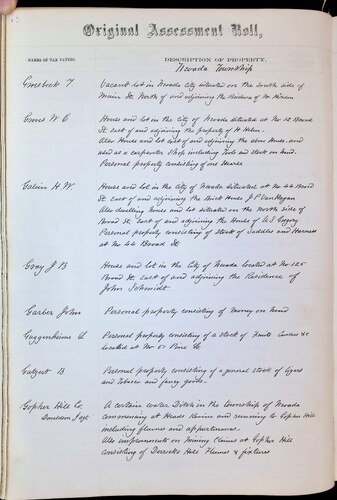 Original Assessment Roll,
NAMES OF TAX PAYERS.
DESCRIPTION OF PROPERTY.
Nevada Township
Groesbeck T.
Vacant lot in Nevada City situated on the South side of
Main St. North of and adjoining the Residence of Mr
House and lot in the City of Nevada situated at No 12 Broad
St. East of and adjoining the property of H
Also House and lot East of and adjoining the above House and
used as a Carpenter Shop including Tools and Stock on hand.
Personal property consisting of one Hearse
H. W.
House and lot in the City of Nevada situated at No 44 Broad
St. East of and adjoining the Brick House J P Van Hagan
Also dwelling house and lot situated on the North side of
Broad St. East of and adjoining the House of A S
Personal property consisting of Stock of Saddles and Harness
at No 44 Broad St.
Gray J B
House and lot in the City of Nevada located at No 125
Broad St. East of and adjoining the Residence of
John Schmidt
Garber John
Personal property consisting of Money on Hand
Guggenheime
Personal property consisting of a stock of Fruits Candies &c
located at No 5 Pine St
B
Personal property consisting of a general stock of Cigars
and Tobacco and fancy goods.
Gopher Hill Co.
A certain water Ditch in the township of Nevada
commencing at Heads Ravine and running to Gopher Hill
including flumes and appurtenances.
Also improvements on Mining Claims at Gopher Hill
consisting of Derricks Hose Flumes & fixtures